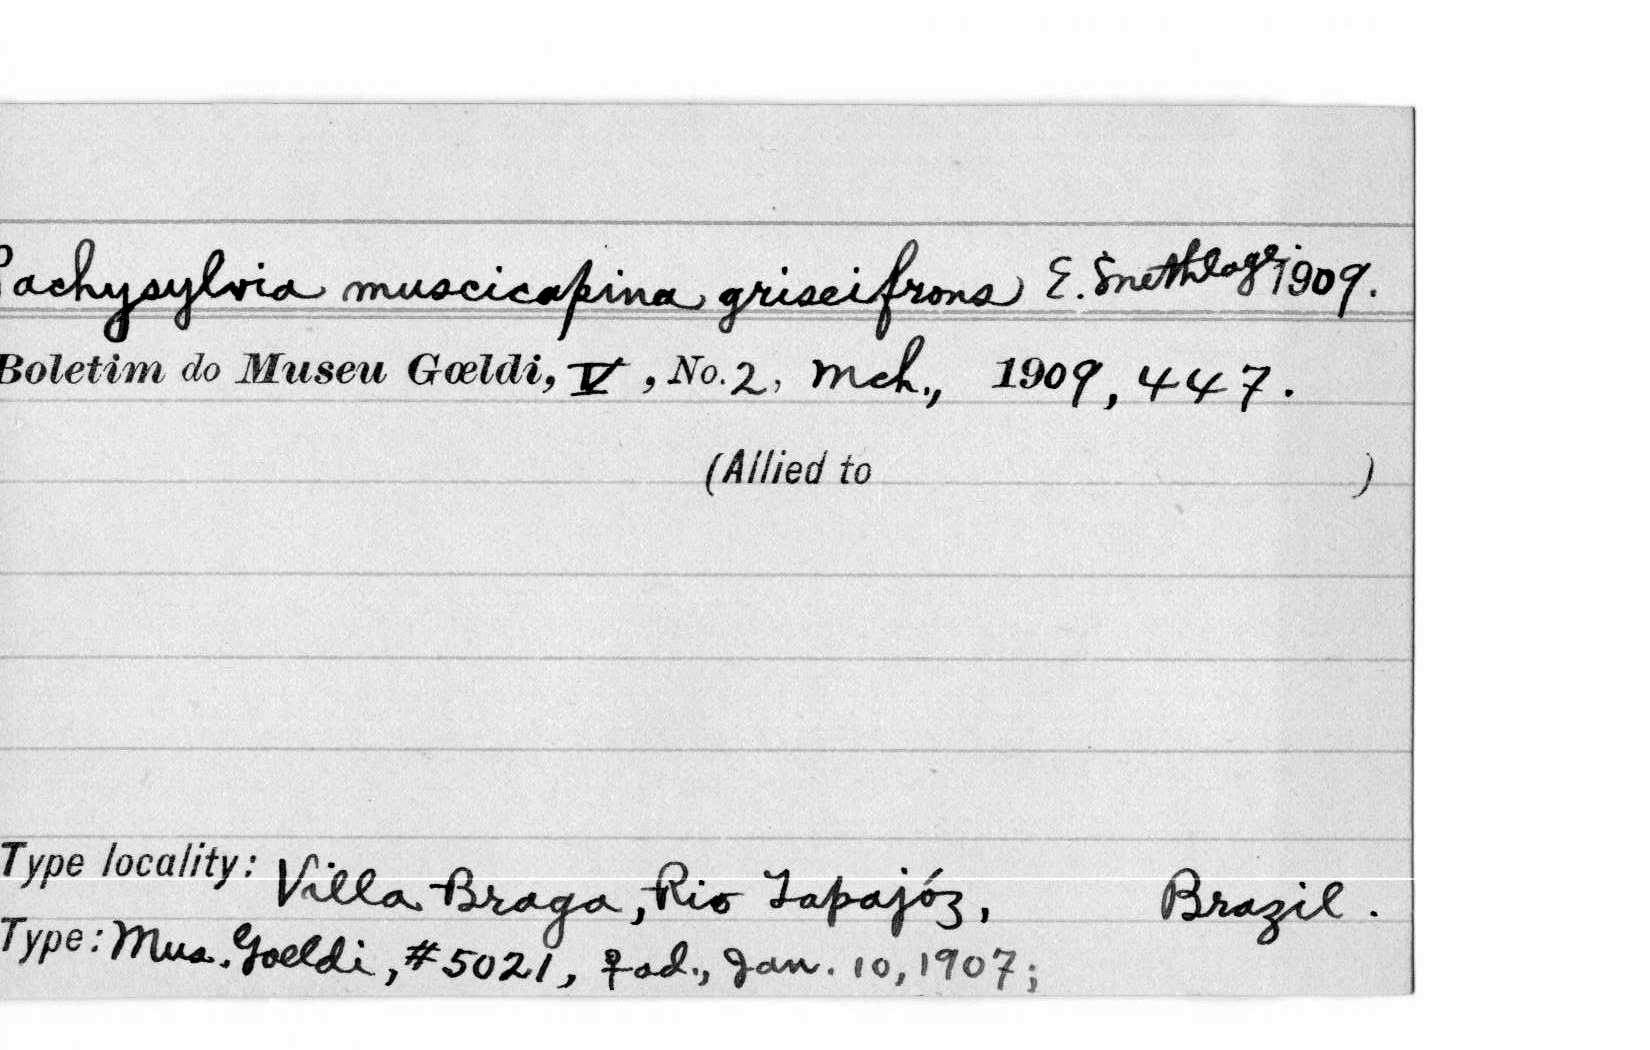 Pachysylvia muscicapina griseifrons E. Snethlage 1909.
Boletim do Museu Gœldi, V, No. 2, Mch., 1909, 447.
(Allied to )
Type locality: Villa Braga, Rio Tapajóz, Brazil.
Type: Mus. Goeldi, #5021, ♀ ad., Jan. 10, 1907;